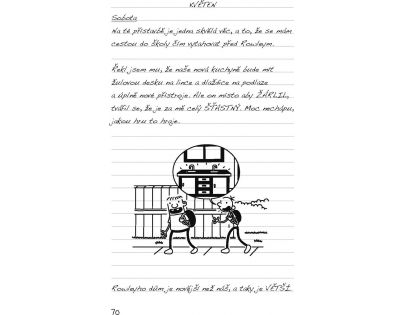 KVĚTEN
Sobota
Na té přístavbě je jedna skvělá věc, a to, že se mám
cestou do školy čím vytahovat před Rowleym.
Řekl jsem mu, že naše nová kuchyně bude mít
žulovou desku na lince a dlaždice na podlaze
a úplně nové přístroje. Ale on místo aby ŽÁRLIL,
tvářil se, že je za mě celý ŠŤASTNÝ. Moc nechápu,
jakou hru to hraje.
Rowleyho dům je novější než náš, a taky je VĚTŠÍ.
70